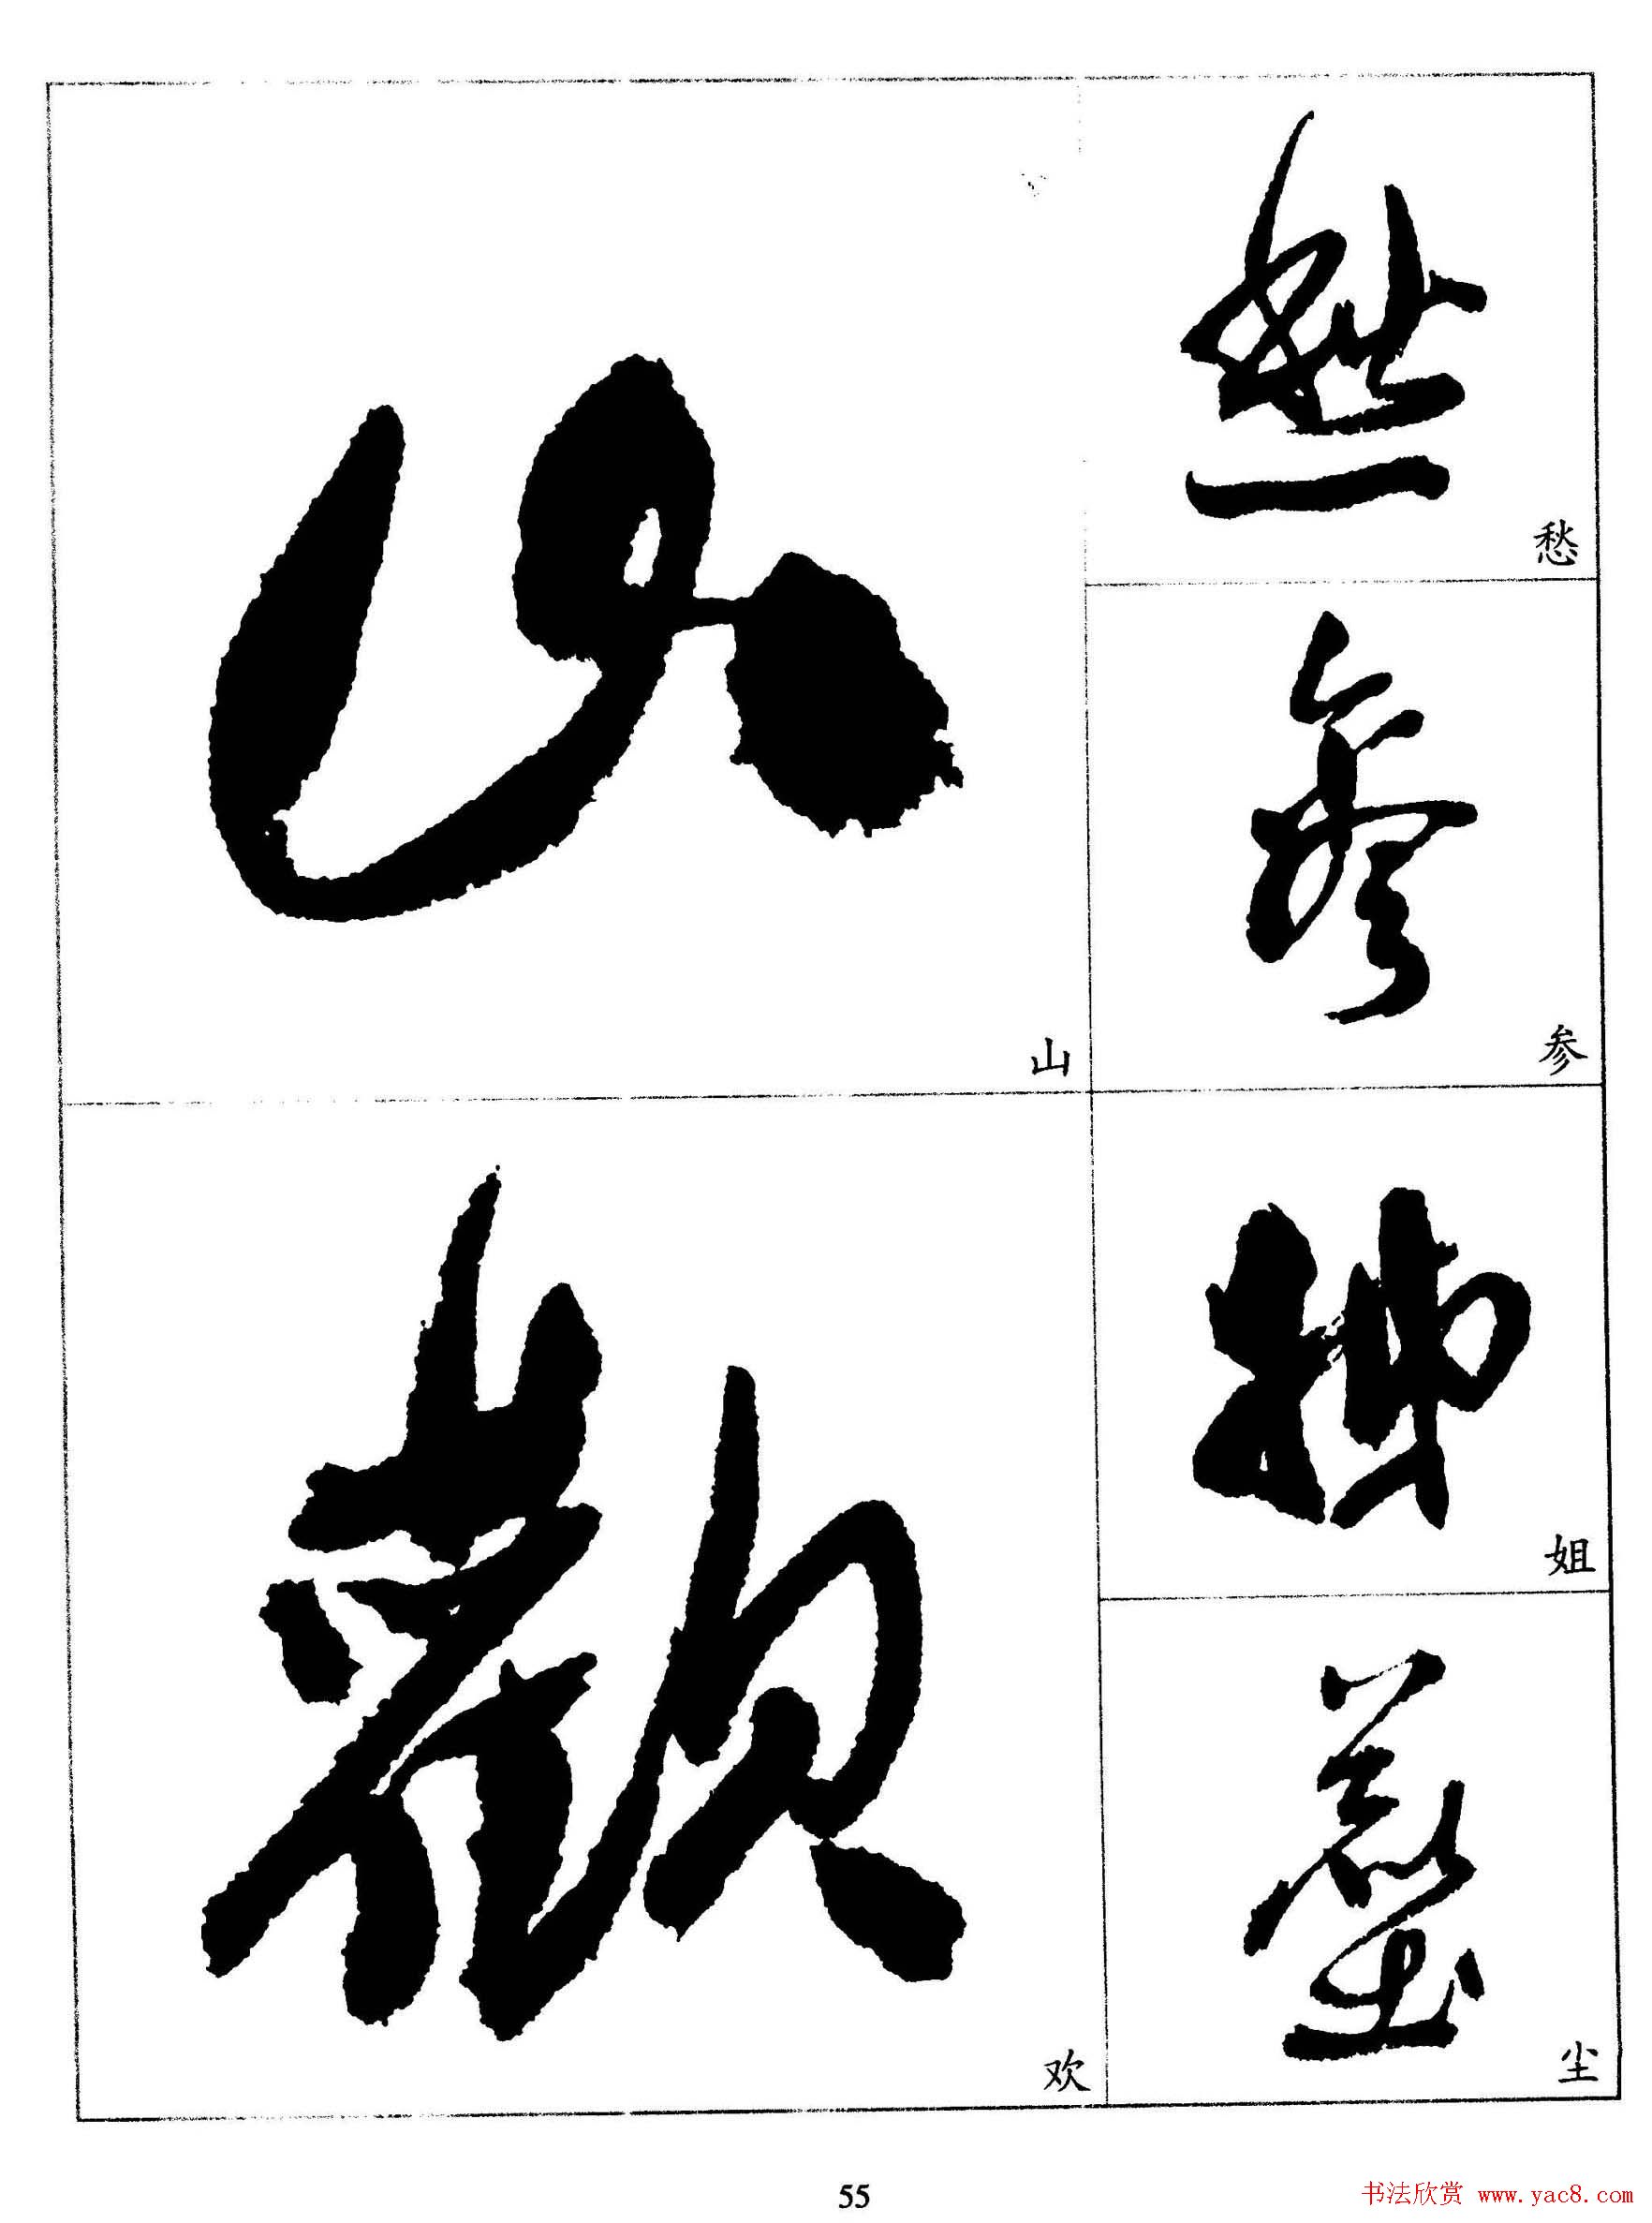 愁
参
姐
尘
山
欢
55
书法欣赏 www.yac8.com